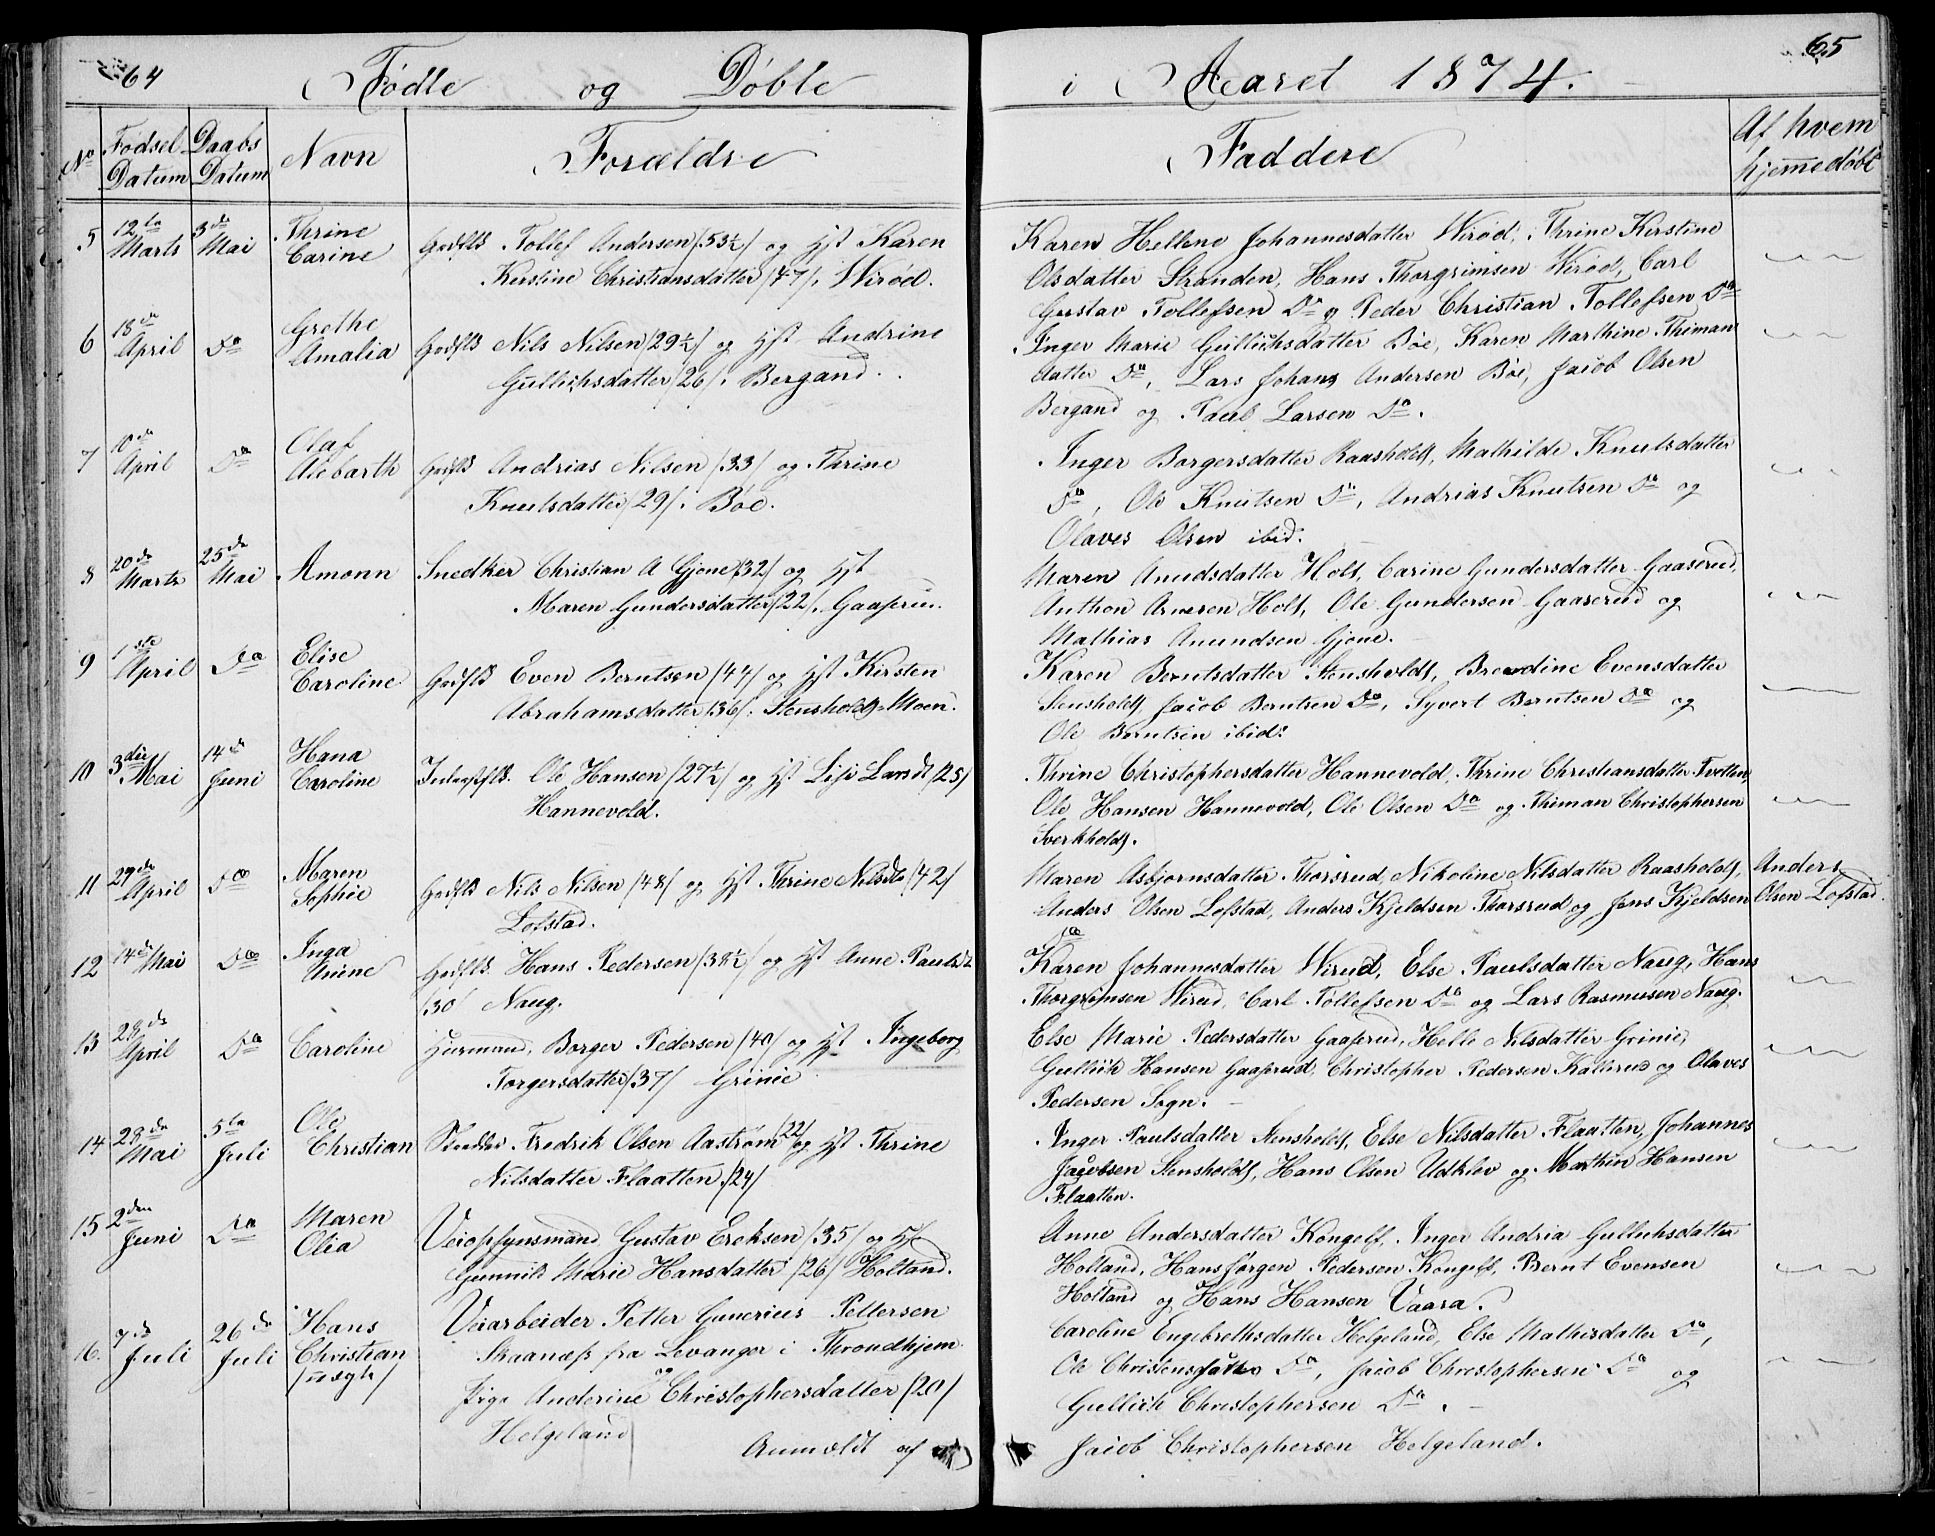 64
Fødte og Døbte
i Aaret 1874.
65
No
Fødsel Datum
Daabs Datum
Navn
Forældre
Faddere
Af hvem hjemmedøbt
5 12te Marts 3de Mai Thrine Carine
Gaardmd Tollef Andersen /53½/ og Hst Karen
Kirstine Christiansdatter /47/. Wirød.
Karen Hellene Johannesdatter Wirød, Thrine Kirstine
Olsdatter Stranden, Hans Thorgrimsen Wirød, Carl
Gustav Tollefsen Do og Peder Christian Tollefsen Do
6 18de April Do Grethe Amalia
Nils Nilsen /29½/ og Hst Andrine
Gullichsdatter /26/. Bergand.
Inger Marie Gullichsdatter Bøe, Karen Marthine Thiman
datter Do, Lars Johans Andersen Bøe, Jacob Olsen
Bergand og Paul Larsen Do.
7 10de April Do Olaf
Andrias Nilsen /33/ og Thrine
Knutsdatter /29/. Bøe.
Inger Borgersdatter Raasholdt, Mathilde Knutsdatter
Do, Ole Knutsen Do, Andrias Knutsen Do og
Olaves Olsen ibid.
8 20de Marts 25de Mai Amonn
Snedker Christian A Gjone /32/ og Hst
Maren Gundersdatter /22/. Gaaserud.
Maren Anudsdatter Holt, Carine Gundersdatter Gaaserud,
Anthon Arnesen Holt, Ole Gundersen Gaaserud og
Mathias Anundsen Gjone.
9 1ste April Do Elise Caroline
Even Berntsen /44/ og Hst Kirsten
Abrahamsdatter /36/. Stensholdt-Moen.
Karen Berntsdatter Stensholdt, Berndine Evensdatter
Stensholdt, Jacob Berntsen Do, Syvert Berntsen Do og
Ole Berntsen ibid.
10 3die Mai 14de Juni Hana Caroline
Ole Hansen /27½/ og Hst Lise Larsdt /25/
Hannevold.
Thrine Christophersdatter Hannevold, Thrine Christiansdatter Tvetten,
Ole Hansen Hannevold, Ole Olsen Do og Thiman Christophersen
Sverkholdt.
11 29de April Do Maren Sophie
Nils Nilsen /48/ og Hst Thrine Nilsdt /42/
Lofstad.
Maren Asbjørnsdatter Thorsrud, Nikoline Nilsdatter Raasholdt,
Anders Olsen Lofstad, Anders Kjeldsen Thorsrud og Jens Kjeldsen
Do
Anders
Olsen Lofstad.
12 14de Mai Do Inga
Hans Pedersen /38½/ og Hst Anne Paulsdt
/30/ Naug.
Karen Johannesdatter Wirud, Else Paulsdatter Naug, Hans
Thorgrimsen Wirud, Carl Tollefsen Do og Lars Rasmusen Naug.
13 28de April Do Caroline
Huusmand. Borger Pedersen /40/ og Hst Ingeborg
Torgersdatter /37/ Grinie
Else Marie Pedersdatter Gaaserud, Helle Nilsdatter Grinie,
Gullich Hansen Gaaserud, Christopher Pedersen Kallerud og Olaves
Pedersen Sogn.
14 28de Mai 5te Juli Ole Christian
Fredrik Olsen Aastrøm /22/ og Hst Thrine
Nilsdatter Flaatten /24/
Inger Paulsdatter Stensholdt, Else Nilsdatter Flaatten, Johannes
Jacobsen Stensholdt, Hans Olsen Udklev og Marthin Hansen
Flaatten.
15 2den Juni Do Maren Olia
Veiopsynsmand Gustav Eroksen /35/ og Hst
Gunnild Marie Hansdatter /26/ Holtand.
Anne Andersdatter Kongelf, Inger Andria Gullichsdatter
Holtand, Hans Jørgen Pedersen Kongelf, Bernt Evensen
Holtand og Hans Hansen Vaara.
16. 7de Juli 26de Juli Hans Christian /uægte/
Veiarbeider Petter Gunerius Pettersen
Skaanæs fra Levanger i Throndhjem
og
Pige Anderine Christophersdatter /20/
Helgeland
Anmeldt af
Caroline Engebrethsdatter Helgeland, Else Mathisdatter Do,
Ole Christensdatter Do, Jacob Christophersen Do og
Gullich Christophersen Do.
Jacob Christophersen Helgeland.